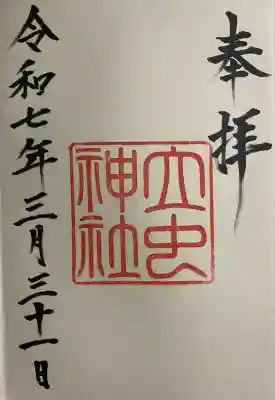 奉拝
大虫
神社
令和七年三月三十一日